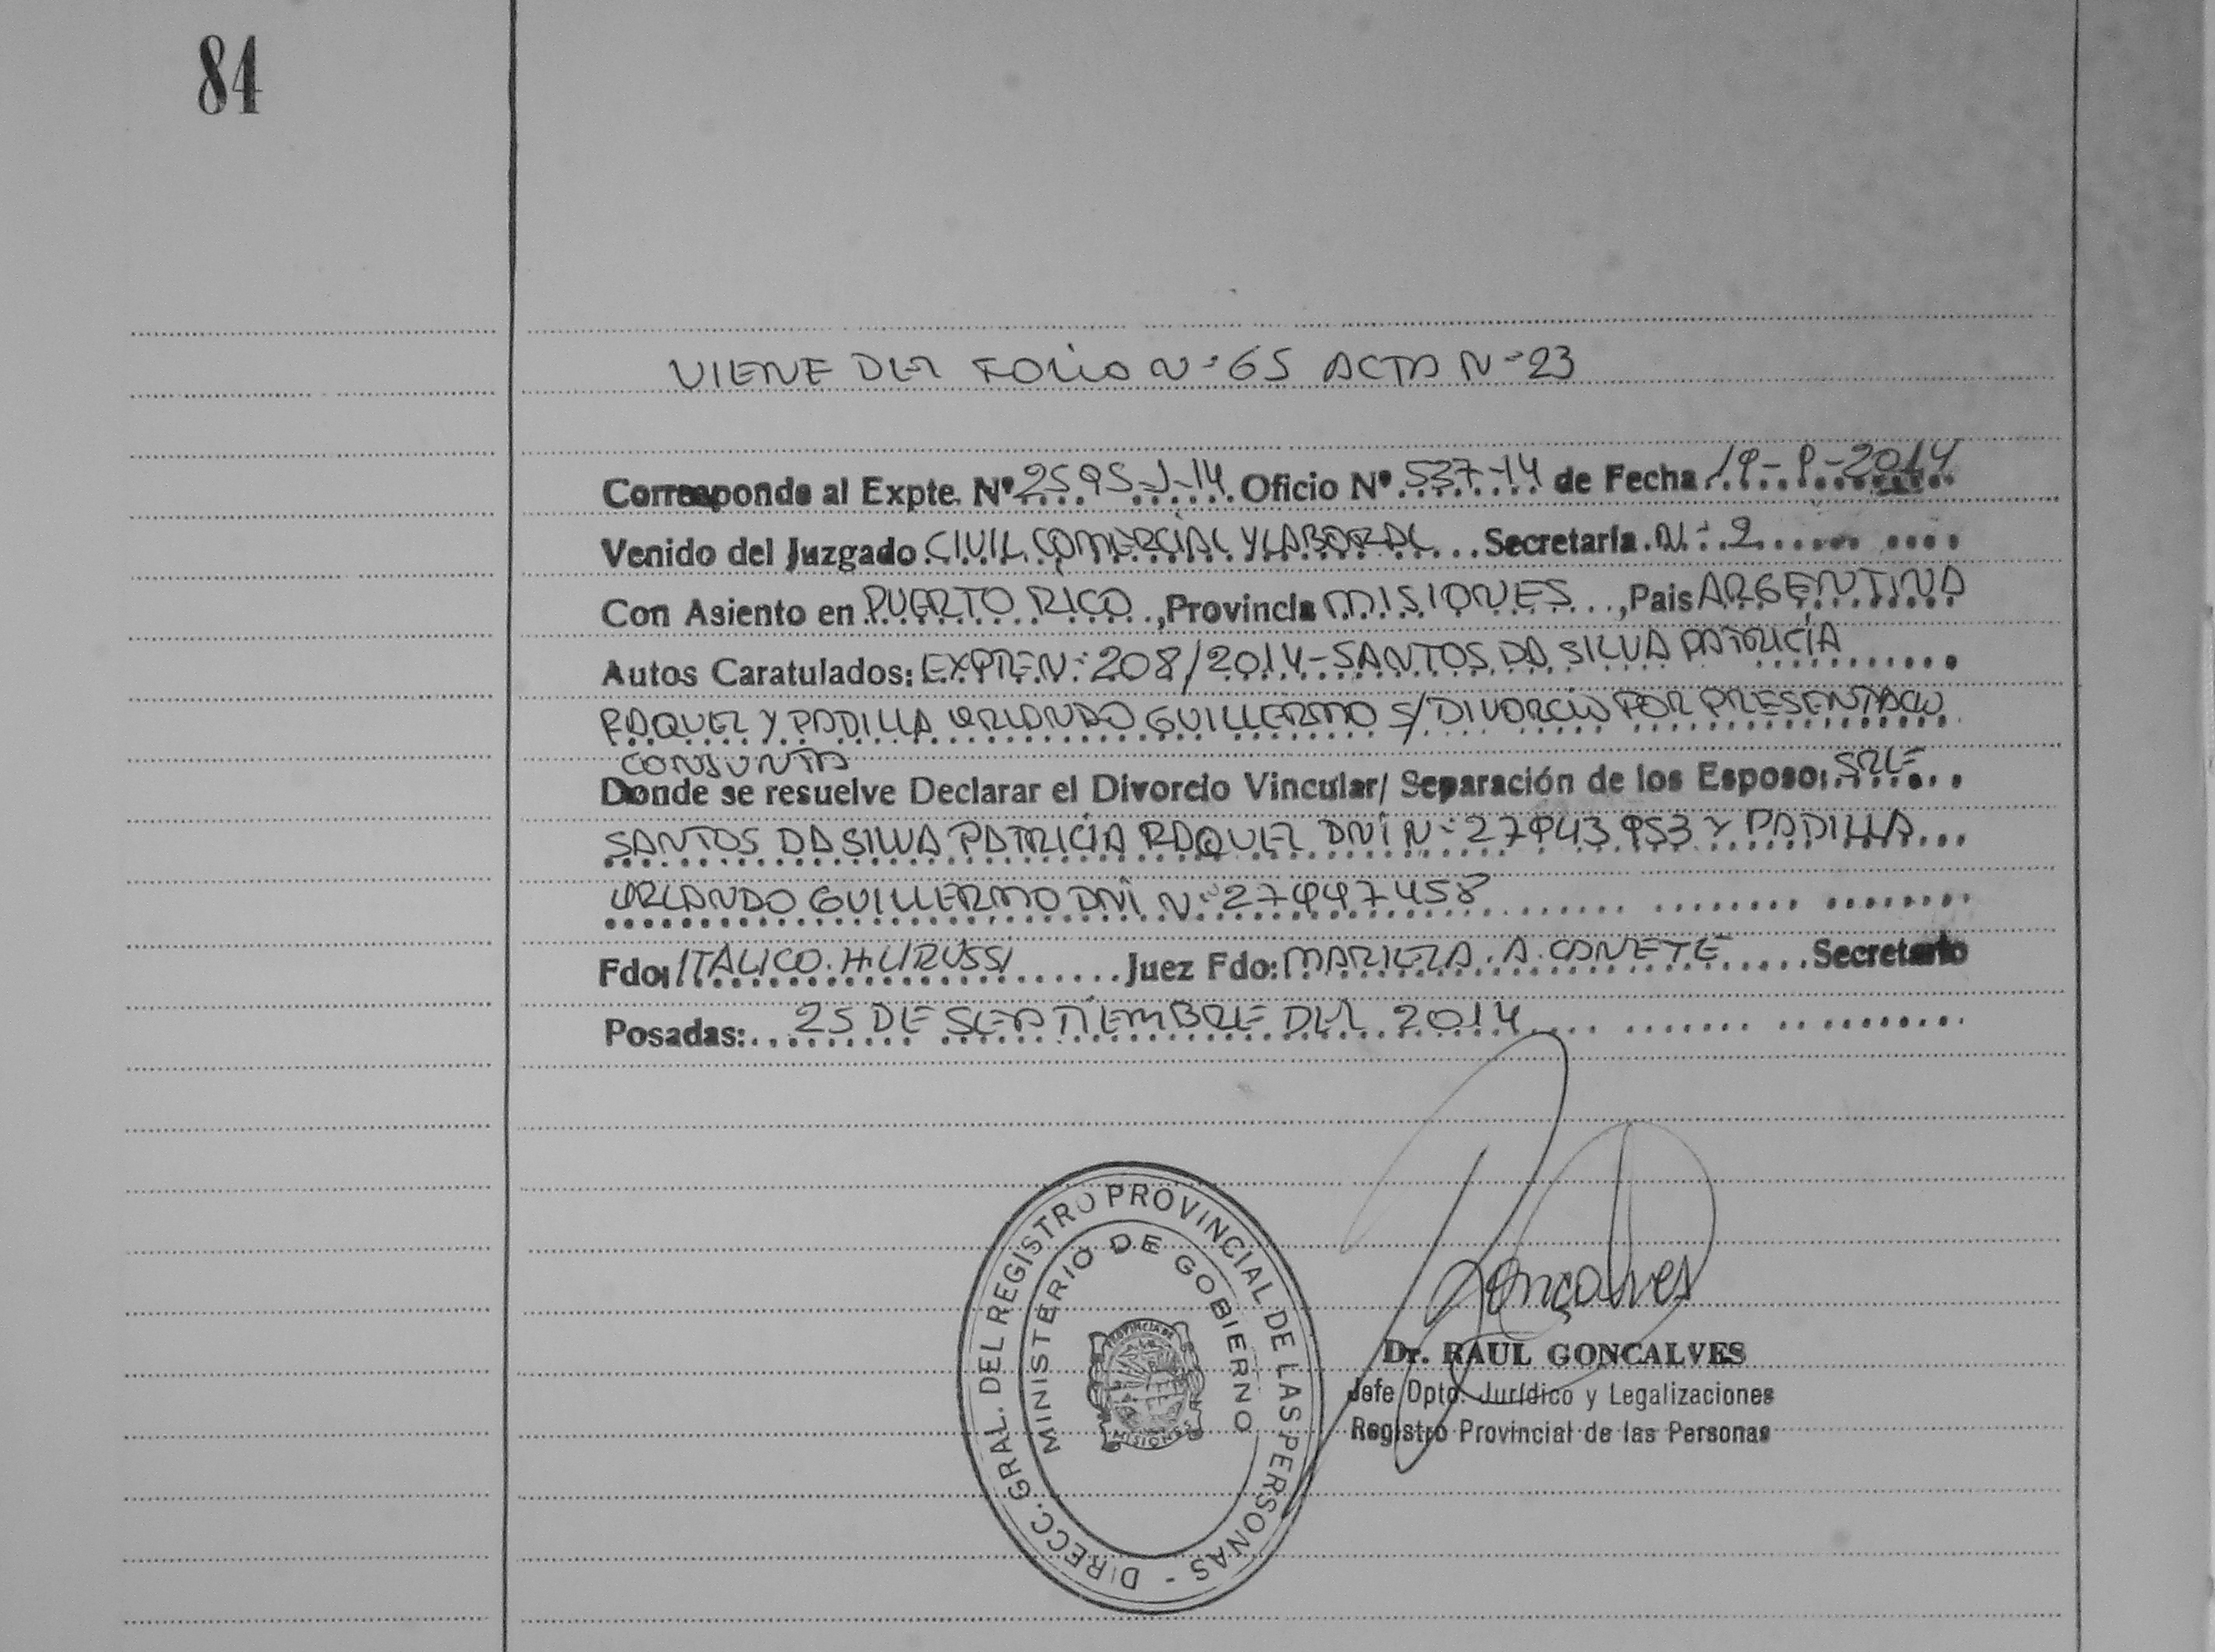 84
VIENE DEL FOLIO N: 65 ACTA N: 23
Corresponde al Expte. Nº 2595-J-14 Oficio Nº 537-14 de Fecha 19-9-2014
Venido del Juzgado CIVIL, COMERCIAL Y LABORAL Secretaría N: 2
Con Asiento en PUERTO RICO, Provincia MISIONES, Pais ARGENTINA
Autos Caratulados: EXPTE N: 208/2014-SANTOS DA SILVA PATRICIA
RAQUEL Y PADILLA ORLANDO GUILLERMO S/ DIVORCIO POR PRESENTACIO
CONJUNTA
Donde se resuelve Declarar el Divorcio Vincular/ Separación de los Esposo: SRLE
SANTOS DA SILVA PATRICIA RAQUEL DNI N: Y PADILLA
ORLANDO GUILLERMO DNI N:
Fdo: ITALICO. H. Juez Fdo: A. Secretario
Posadas: 25 DE SEPTIEMBRE DEL 2014
DIRECC. GRAL. DEL REGISTRO PROVINCIAL DE LAS PERSONAS -
MINISTERIO DE GOBIERNO
PROVINCIA DE
MISIONES
Gonçalves
Dr. RAUL GONCALVES
Jefe Dpto. Jurídico y Legalizaciones
Registro Provincial de las Personas